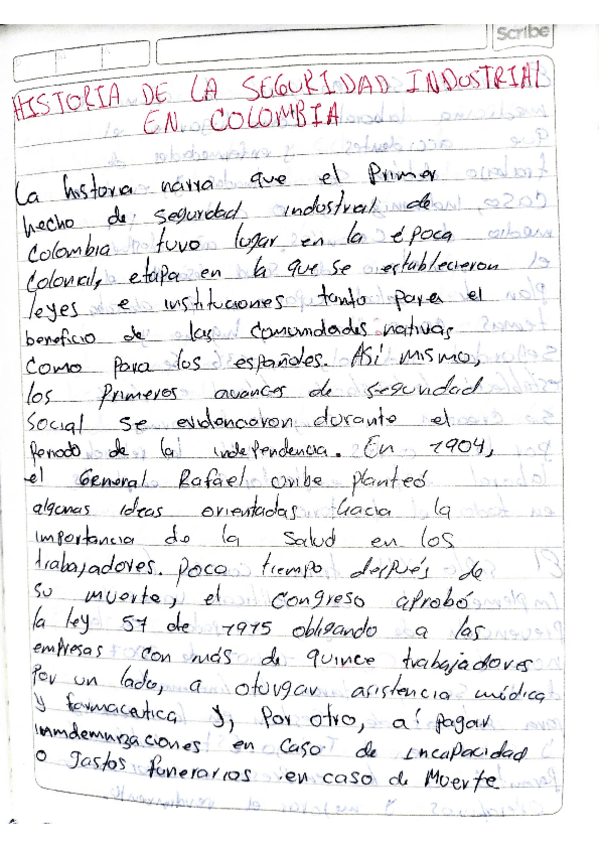 Scribe
HISTORIA DE LA SEGURIDAD INDUSTRIAL
EN COLOMBIA
La historia narra que el Primer
hecho de seguridad industrial de
Colombia tuvo lugar en la época
Colonial, etapa en la que se establecieron
leyes e instituciones tanto para el
beneficio de las comunidades nativas
Como para los españoles. Así mismo,
los Primeros avances de seguridad
Social se evidenciaron durante el
Periodo de la independencia. En 1904,
el General Rafael Uribe planteó
algunas ideas orientadas hacia la
importancia de la Salud en los
trabajadores. Poco tiempo después de
su muerte, el Congreso aprobó
la ley 57 de 1915 obligando a las
empresas con más de quince trabajadores
Por un lado, a otorgar asistencia médica
y farmaceutica y, Por otro, a pagar
inmdemnizaciones en caso de incapacidad
o gastos funerarios en caso de Muerte